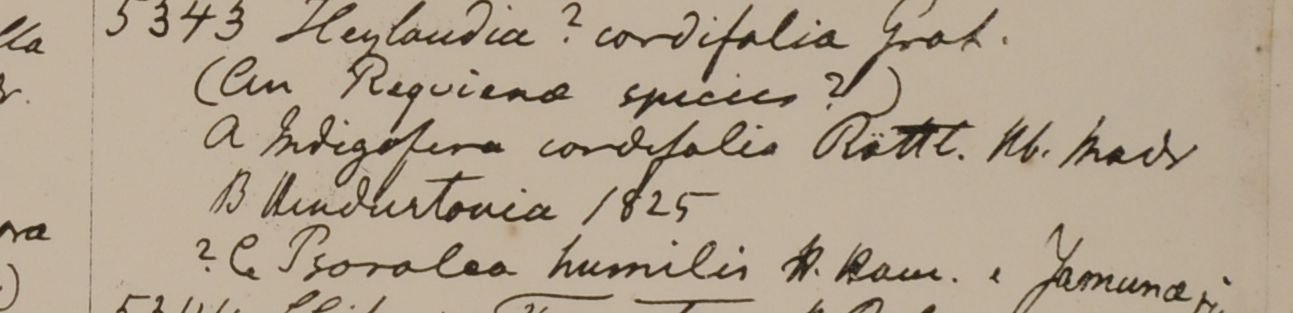 lla
5343 Heylandia? cordifolia Grah.
(An Requienæ species?)
A Indigofera cordifolia Röttl. Hb. Madr
B Hindustania 1825
? C Psoralea humilis H. Ham. e Jamunæ